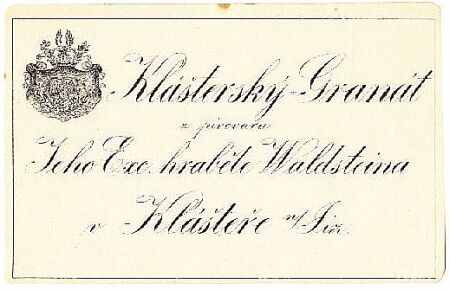 Klášterský-Granát
z pivovaru
Jeho Exc. hraběte Waldsteina
v Klášteře n/Jiz.